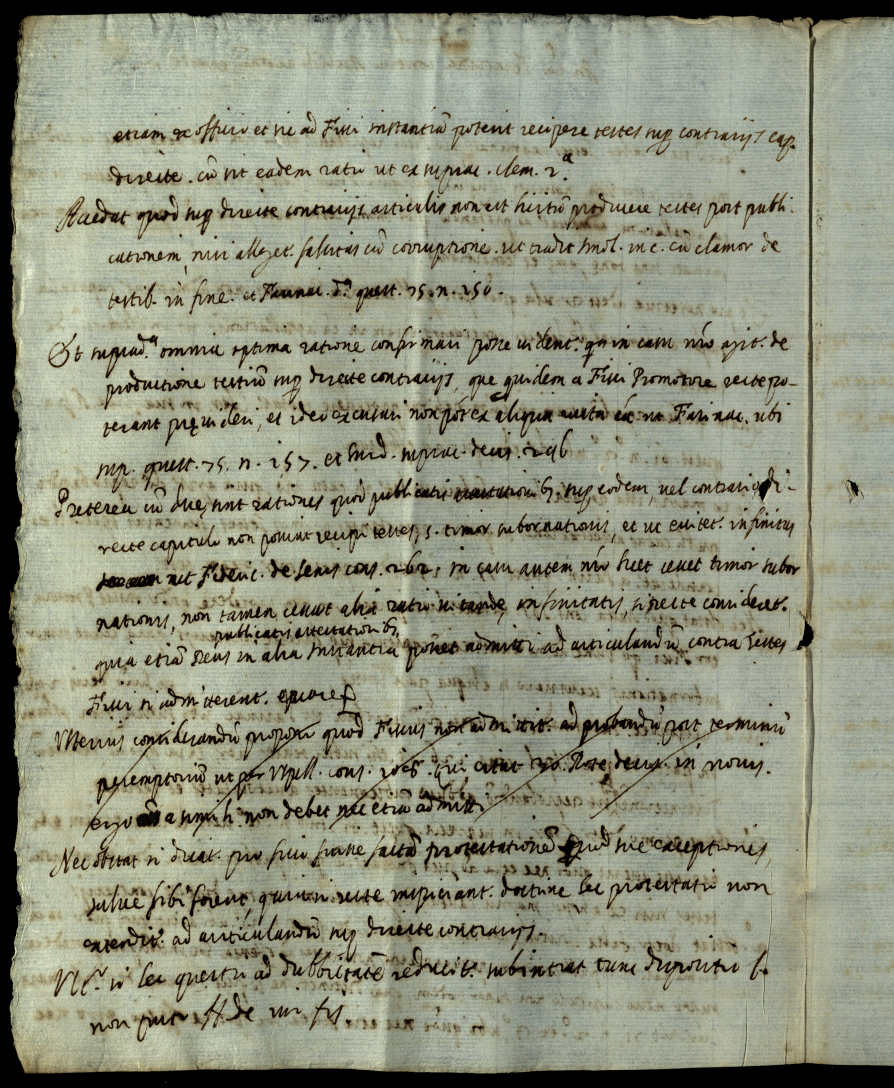 etiam ex officio et sic ad Fisci instantiā poterit recipere testes sup contrarijs cap.
directe. cū sit eadem ratio ut ex suprac. clem. 2.ª
Accedat quod sup directe contrarijs articulis non est licitū producere testes post publi-
cationem, nisi alleget. falsitas cū corruptione. ut tradit Imol. in c. cū clamor de
testib. in fine. et Farinac. d.ª quest. 75. n. 150.
Et suprad.ª omnia optima ratione confirmari posse vident. qa in casu nro agit. de
productione testiū sup directe contrarijs, que quidem a Fisci Promotore recte po-
terant preuideri, et ideo excusari non pōt ex aliqua ut Farinac. ubi
sup. quest. 75. n. 157. et suprac. decis. 296
Preterea cū due sint rationes quod publicatis sup eodem, vel contrario di-
recte capitulo non possint recipi testes, s. timor subornationis, et ut euitet. infinitas
ut Federic. de Senis cons. 262, in casu autem nro licet cesset timor subor
nationis, non tamen cesset alia ratio uitande infinitatis, si recte consideret.
publicatis attestationib.
quia etiā Reus in alia instantia posset admitti ad articulandū contra testes
Fisci si admitterent. quare
Ulterius considerandū propono quod Fiscus non admittit. ad probandū post terminū
peremptoriū ut per cons. qui citat Rote decis. in nouis.
ergo a simili non debet nec etiā admitti
Nec obstat si dicat. pro fisco fuisse factā protestationē quod sue exceptiones
salue sibi forent, quia si recte inspiciant. doctrine hec protestatio non
extendit. ad articulandū sup directe contrarijs.
Ult.º si hec questio ad dubbietatē reducit. subintrat tunc dispositio l.
non puto ff de iur fis